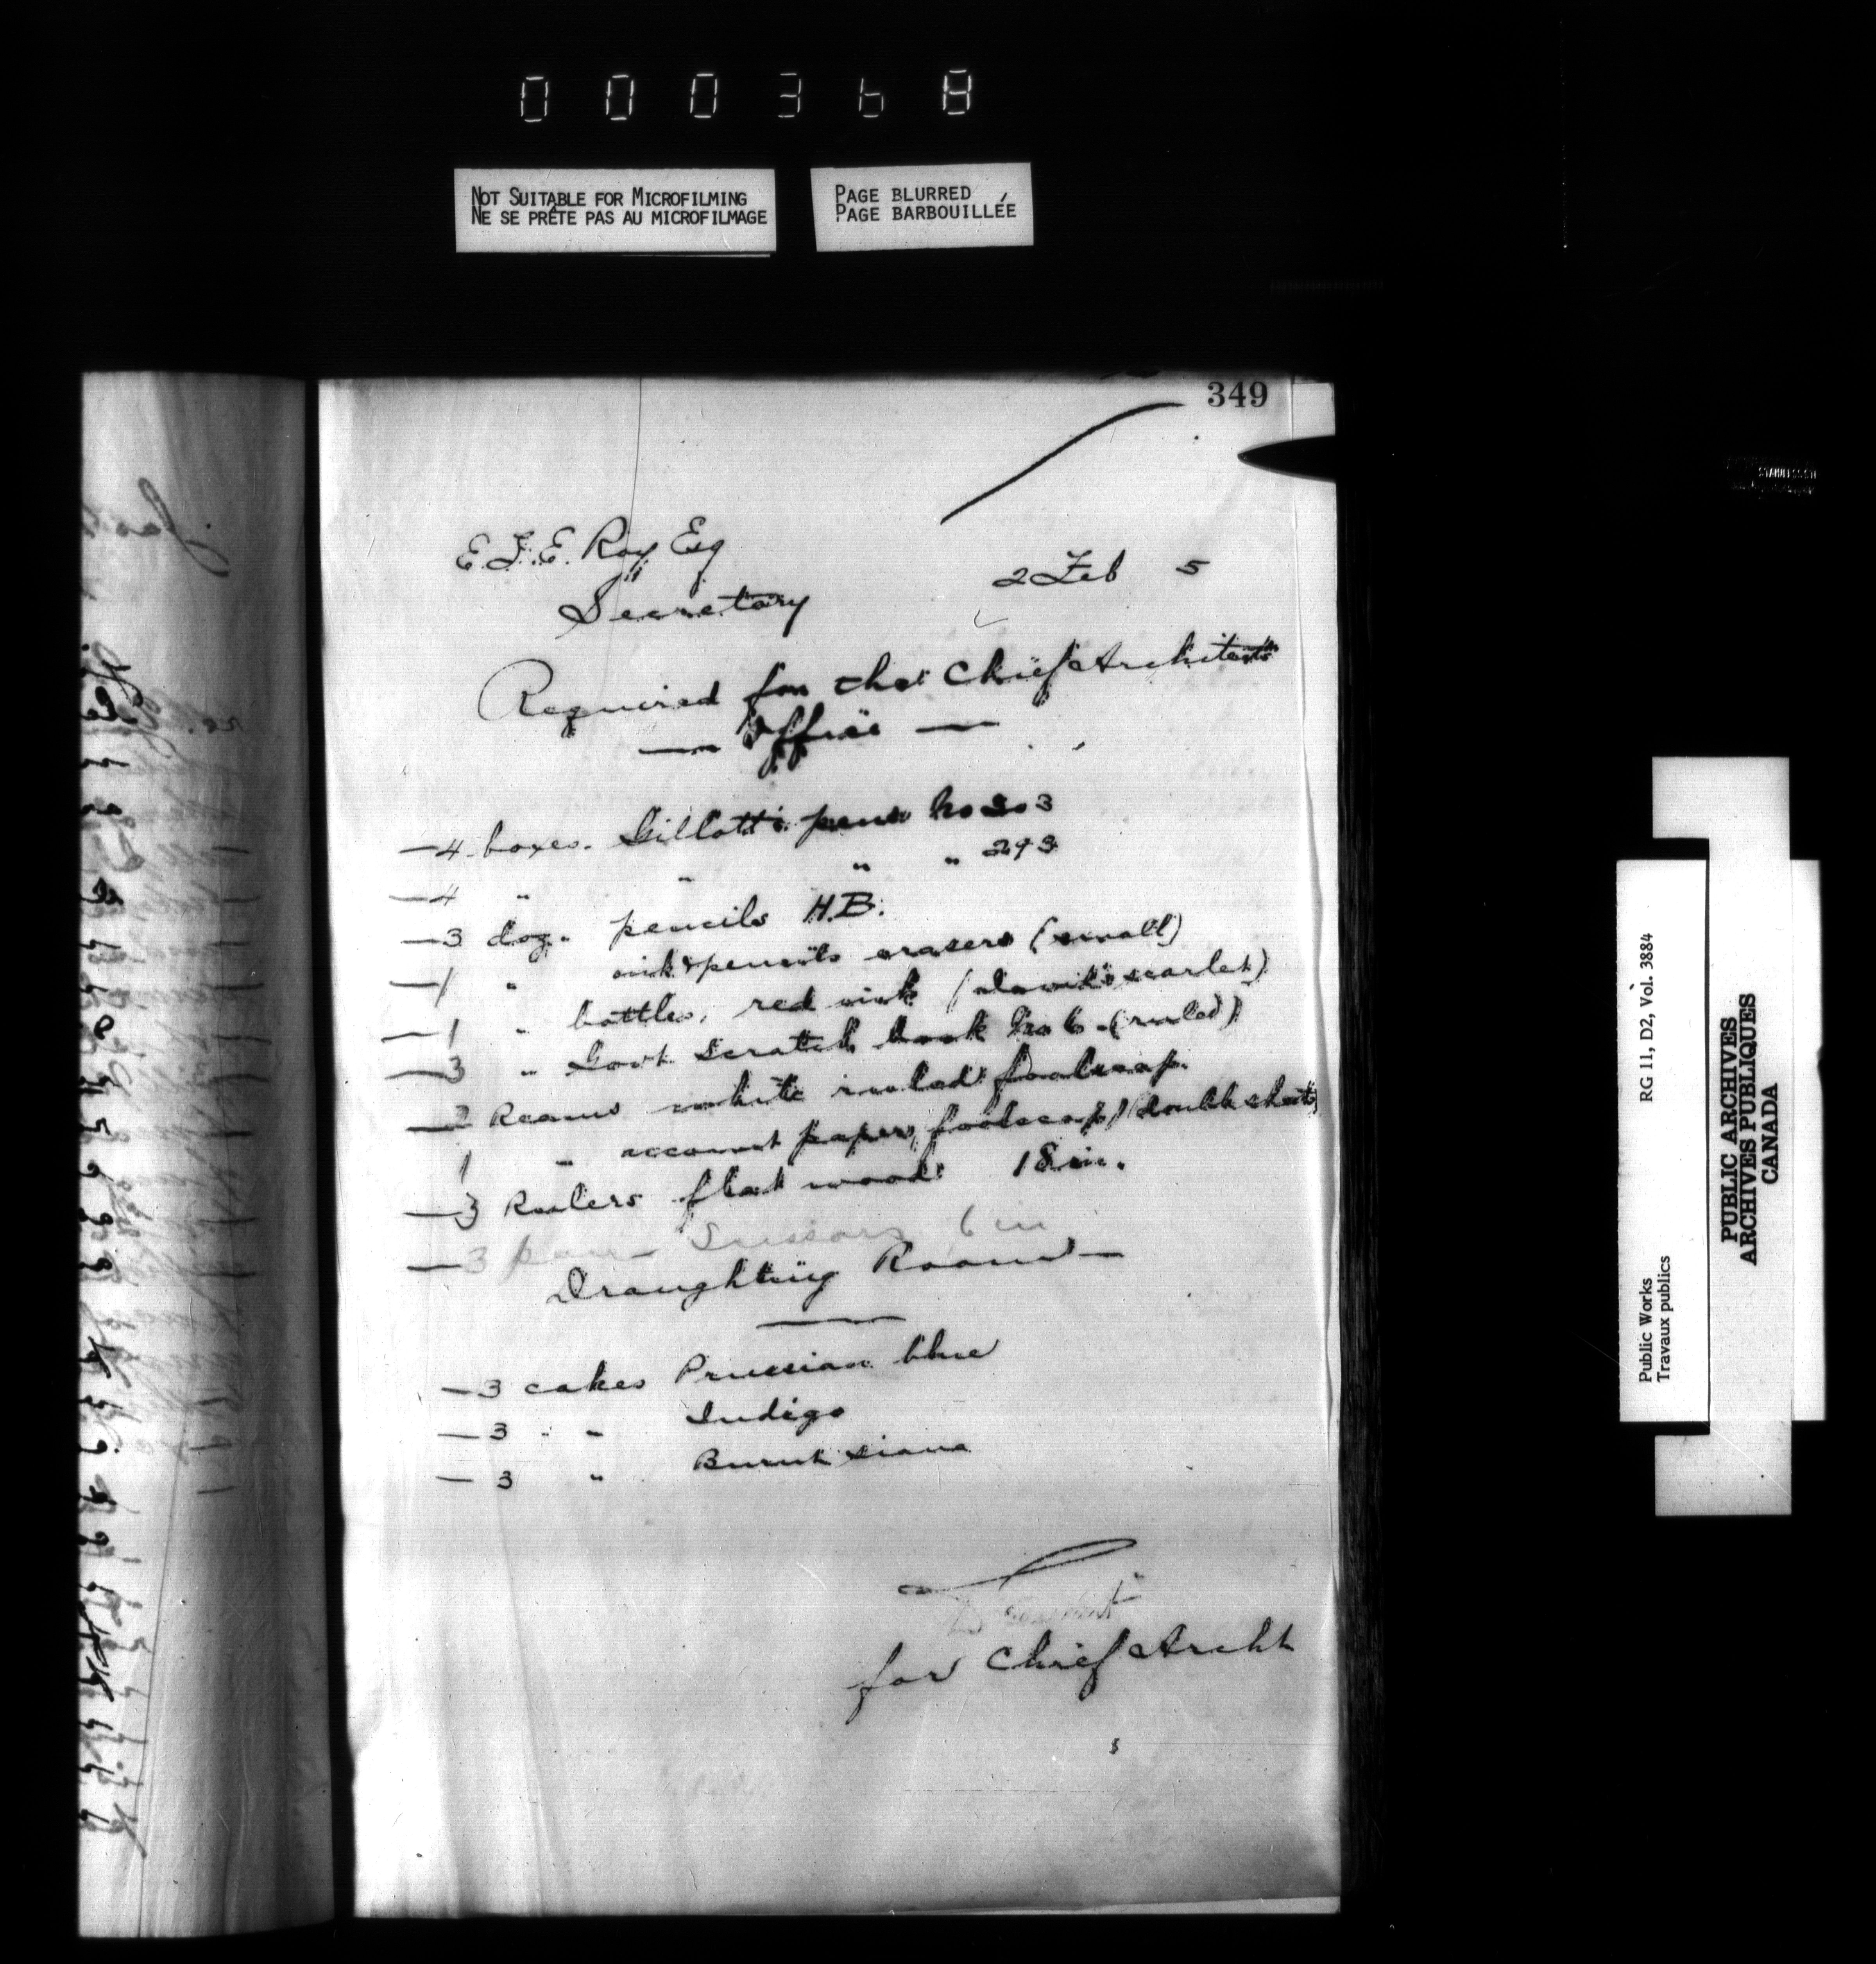 000368
NOT SUITABLE FOR MICROFILMING
NE SE PRÊTE PAS AU MICROFILMAGE
PAGE BLURRED
PAGE BARBOUILLÉE
349
E.F.E. Roy Esq
Secretary
2 Feb 5
Required for the Chief Architects
— Office —
— 4 boxes. Gillott's pens No 303
— 4 " " " " 293
— 3 doz. pencils H.B.
— 1 " ink & pencils erasers (small)
— 1 " bottles, red ink ( scarlet)
— 3 " Govt Scratch book No 6 - (ruled)
— 2 Reams white ruled foolscap.
1 " account paper, foolscap, (double sheets)
— 3 Rulers flat wood 18 in.
— 3 pair Scissors 6 in
Draughting Room —
— 3 cakes Prussian blue
— 3 " " Indigo
— 3 " Burnt siena
D Ewart
for Chief Archt
RG 11, D2, Vol. 3884
Public Works
Travaux publics
PUBLIC ARCHIVES
ARCHIVES PUBLIQUES
CANADA